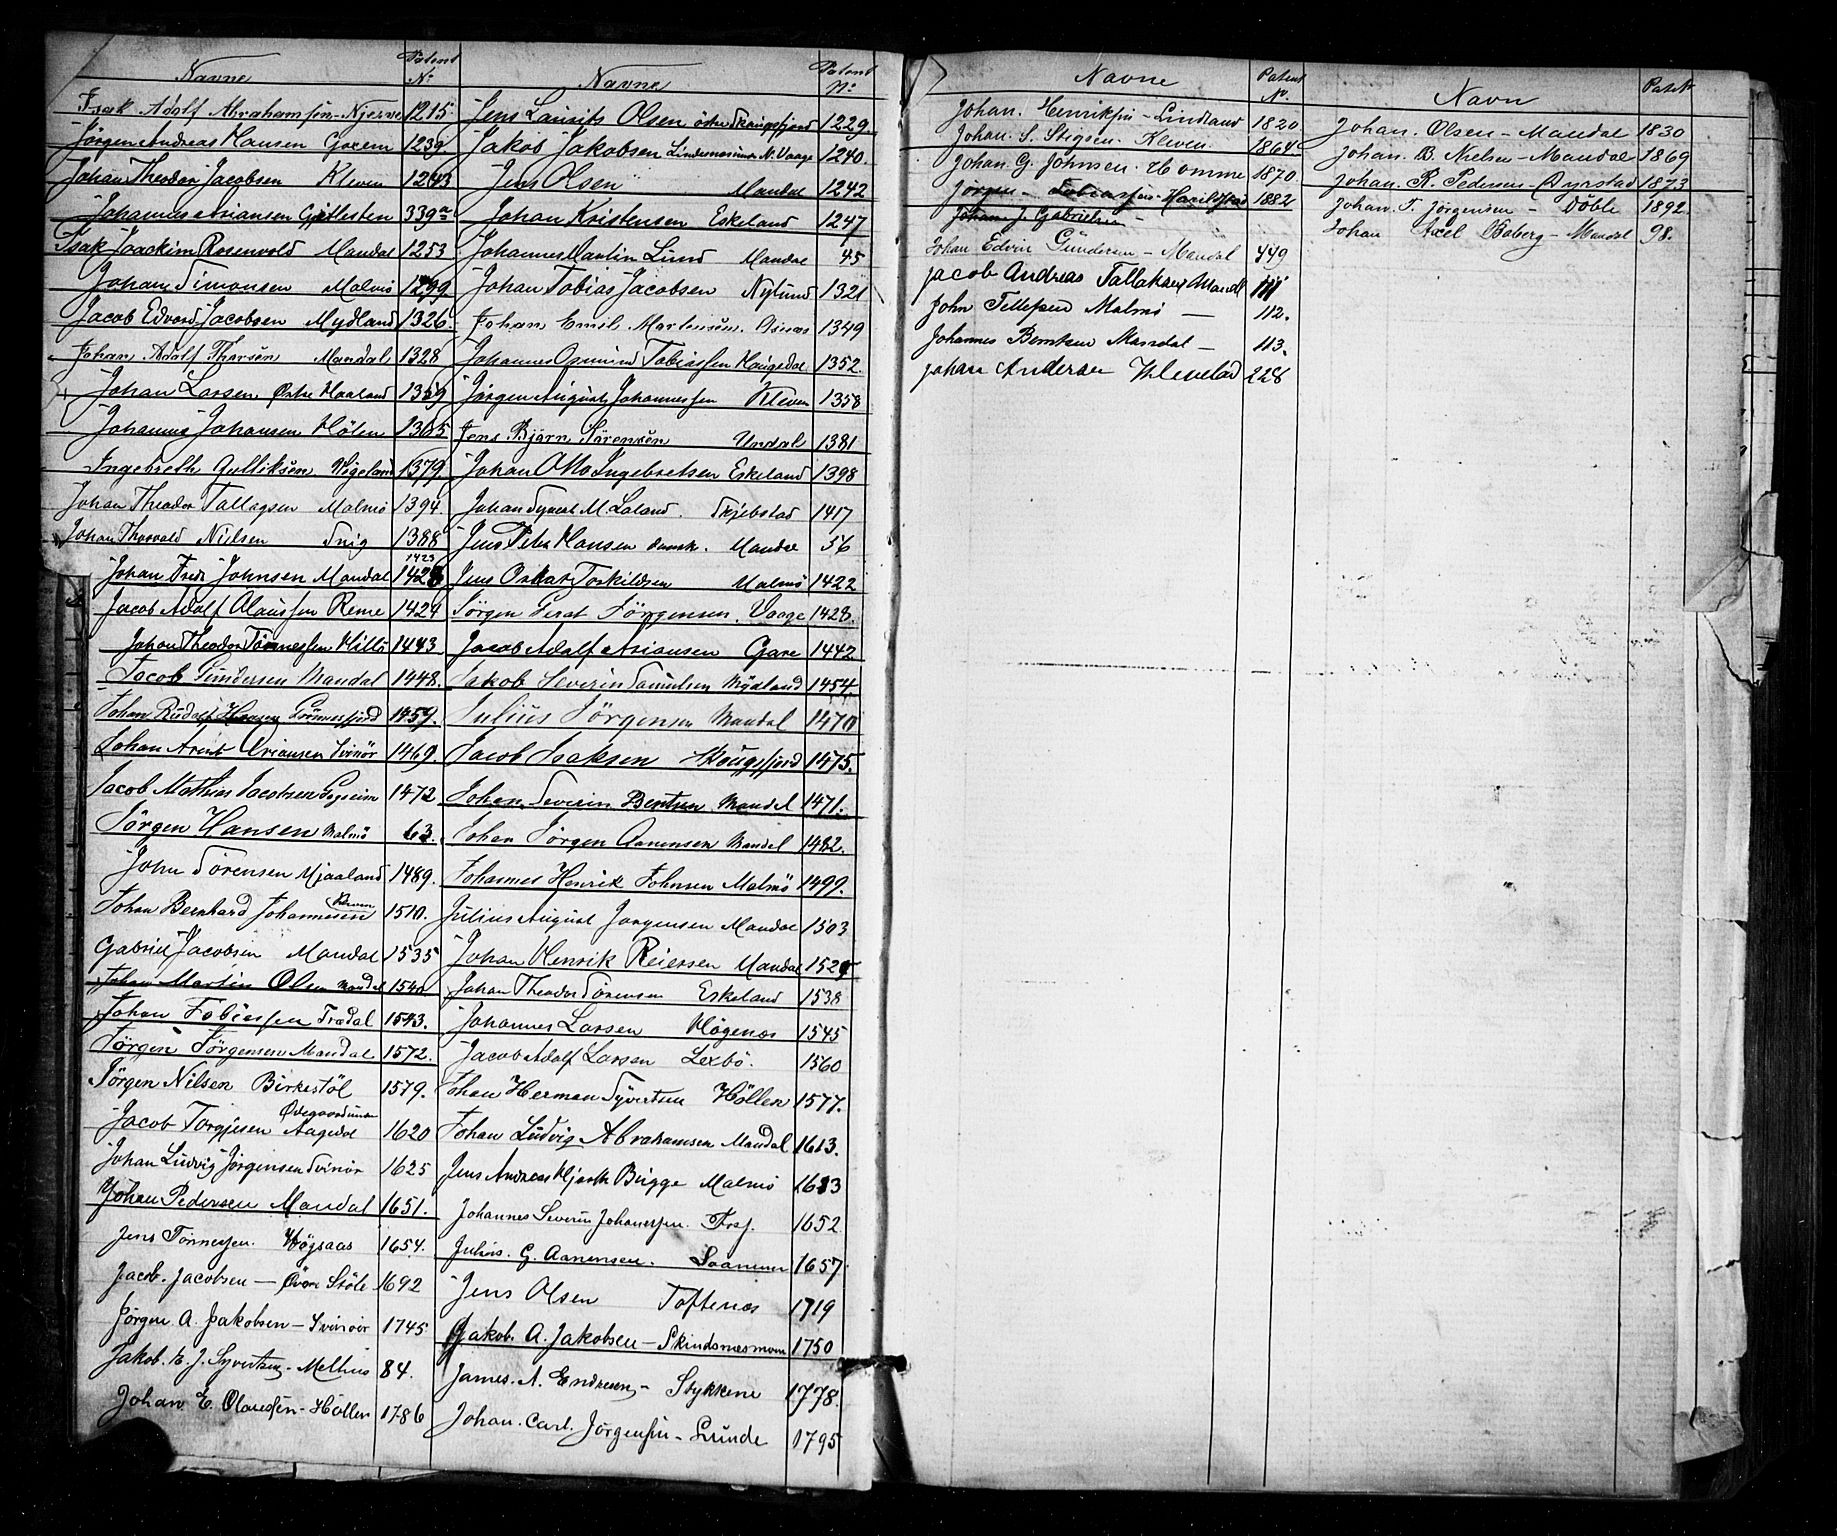 Navne Patent No
Isak Adolf Abrahamsen - Njerve 1215
Jörgen Andreas Hansen Goxem 1239
Johan Theodor Jacobsen Kleven 1243
Johannes Ariansen Gjitlesten 339a
Isak Joackim Rosenvold Mandal 1253
Johan Simonsen Malmö 1299
Jacob Edvard Jacobsen Mydland 1326
Johan Adolf Thorsen Mandal 1328
Johan Larsen Östre Haaland 1359
Johannes Johansen Hölen 1365
Ingebreth Gulliksen Vigeland 1379
Johan Theodor Tallagsen Malmö 1394
Johan Thorvald Nielsen Snig 1388
1425
Johan Fredr Johnsen Mandal 1428
Jacob Adolf Olaussen Reme 1429
Johan Theodor Tönnessen Hille 1443
Jacob Gundersen Mandal 1448
Johan Rudolf Hansen Grönnesfjord 1459
Johan Arent Ariansen Svinör 1469
Jacob Mathias Jacobsen 1472
Jörgen Hansen Malmö 63
John Sörensen Mjaaland 1489
Johan Bernhard Johannesen 1510
Gabriel Jacobsen Mandal 1535
Johan Martin Olsen Mandal 1540
Johan Tobiassen Tredal 1543
Jörgen Jörgensen Mandal 1572
Jörgen Nilsen Birkestöl 1579
Ödegaardsmoen
Jacob Torgjesen Aagedal 1620
Johan Ludvig Jörgensen Svinör 1625
Johan Pedersen Mandal 1651
Jens Tönnesen Högsaas 1654
Jacob Jacobsen - Övre Stöle 1692
Jörgen A. Jakobsen - Svinöör 1745
Jakob E. J. Syvertsen - Melhus 84
Johan E. Olausen - Höllen 1786
Navne Patent No
Jens Laurits Olsen östre Skougsfjord 1229
Jakob Jakobsen N. Vaage 1240
Jens Olsen Mandal 1242
Johan Kristensen Eskeland 1247
Johannes Martin Lund Mandal 45
Johan Tobias Jacobsen Nylund 1321
Johan Emil Martensen Osnæs 1349
Johannes Osmund Tobiassen Haugedal 1352
Jörgen August Johannessen Kleven 1358
Jens Bjørn Sörensen Undal 1381
Johan Otto Ingebretsen Eskeland 1398
Johan Syvert M. Laland Skjebstad 1417
Jens Peter Hansen dansk Mandal 56
Jens Oskar Torkildsen Malmö 1422
Jörgen Perat Jörgensen Vaage 1428
Jacob Adolf Ariansen Gare 1442
Jakob Severin Samuelsen Mydland 1454
Julius Jörgensen Mandal 1470
Jacob Isaksen Skougsfjord 1475
Johan Severin Bentsen Mandal 1471
Johan Jörgen Aanensen Mandal 1482
Johannes Henrik Johnsen Malmö 1499
Julius August Jörgensen Mandal 1503
Johan Henrik Reiersen Mandal 1525
Johan Theodor Sörensen Eskeland 1538
Johannes Larsen Högenæs 1545
Jacob Adolf Larsen Lexbö 1560
Johan Herman Syvertsen Höllen 1577
Johan Ludvig Abrahamsen Mandal 1613
Jens Andreas Hjorth Bugge Malmö 1633
Johannes Severin Johanessen 1652
Julius G. Aanensen Saanum 1657
Jens Olsen Toftenæs 1719
Jakob A. Jakobsen - Skindsnesmoen 1750
James A. Endresen - Stykkene 1778
Johan Carl Jörgensen - Lunde 1795
Navne Patent No.
Johan Henriksen - Lindland 1820
Johan S. Stigsen Kleven 1864
Johan G. Johnsen Homme 1870
Jörgen Tobiassen Harildstad 1882
Johan J. Gabrielsen -
Johan Edvin Gundersen - Mandal 449
Jacob Andreas Tallaksen Mandl 111
John Tellefsen Malmö - 112.
Johannes Berntsen Mandal - 113.
Johan Andersen Klevelad 228
Navn Pat No
Johan Olsen - Mandal 1830
Johan B. Nielsen - Mandal 1869
Johan R. Pedersen - Dyrstad 1873
Johan T. Jörgensen - Döble 1892
Johan Axel Boberg - Mandal 98.